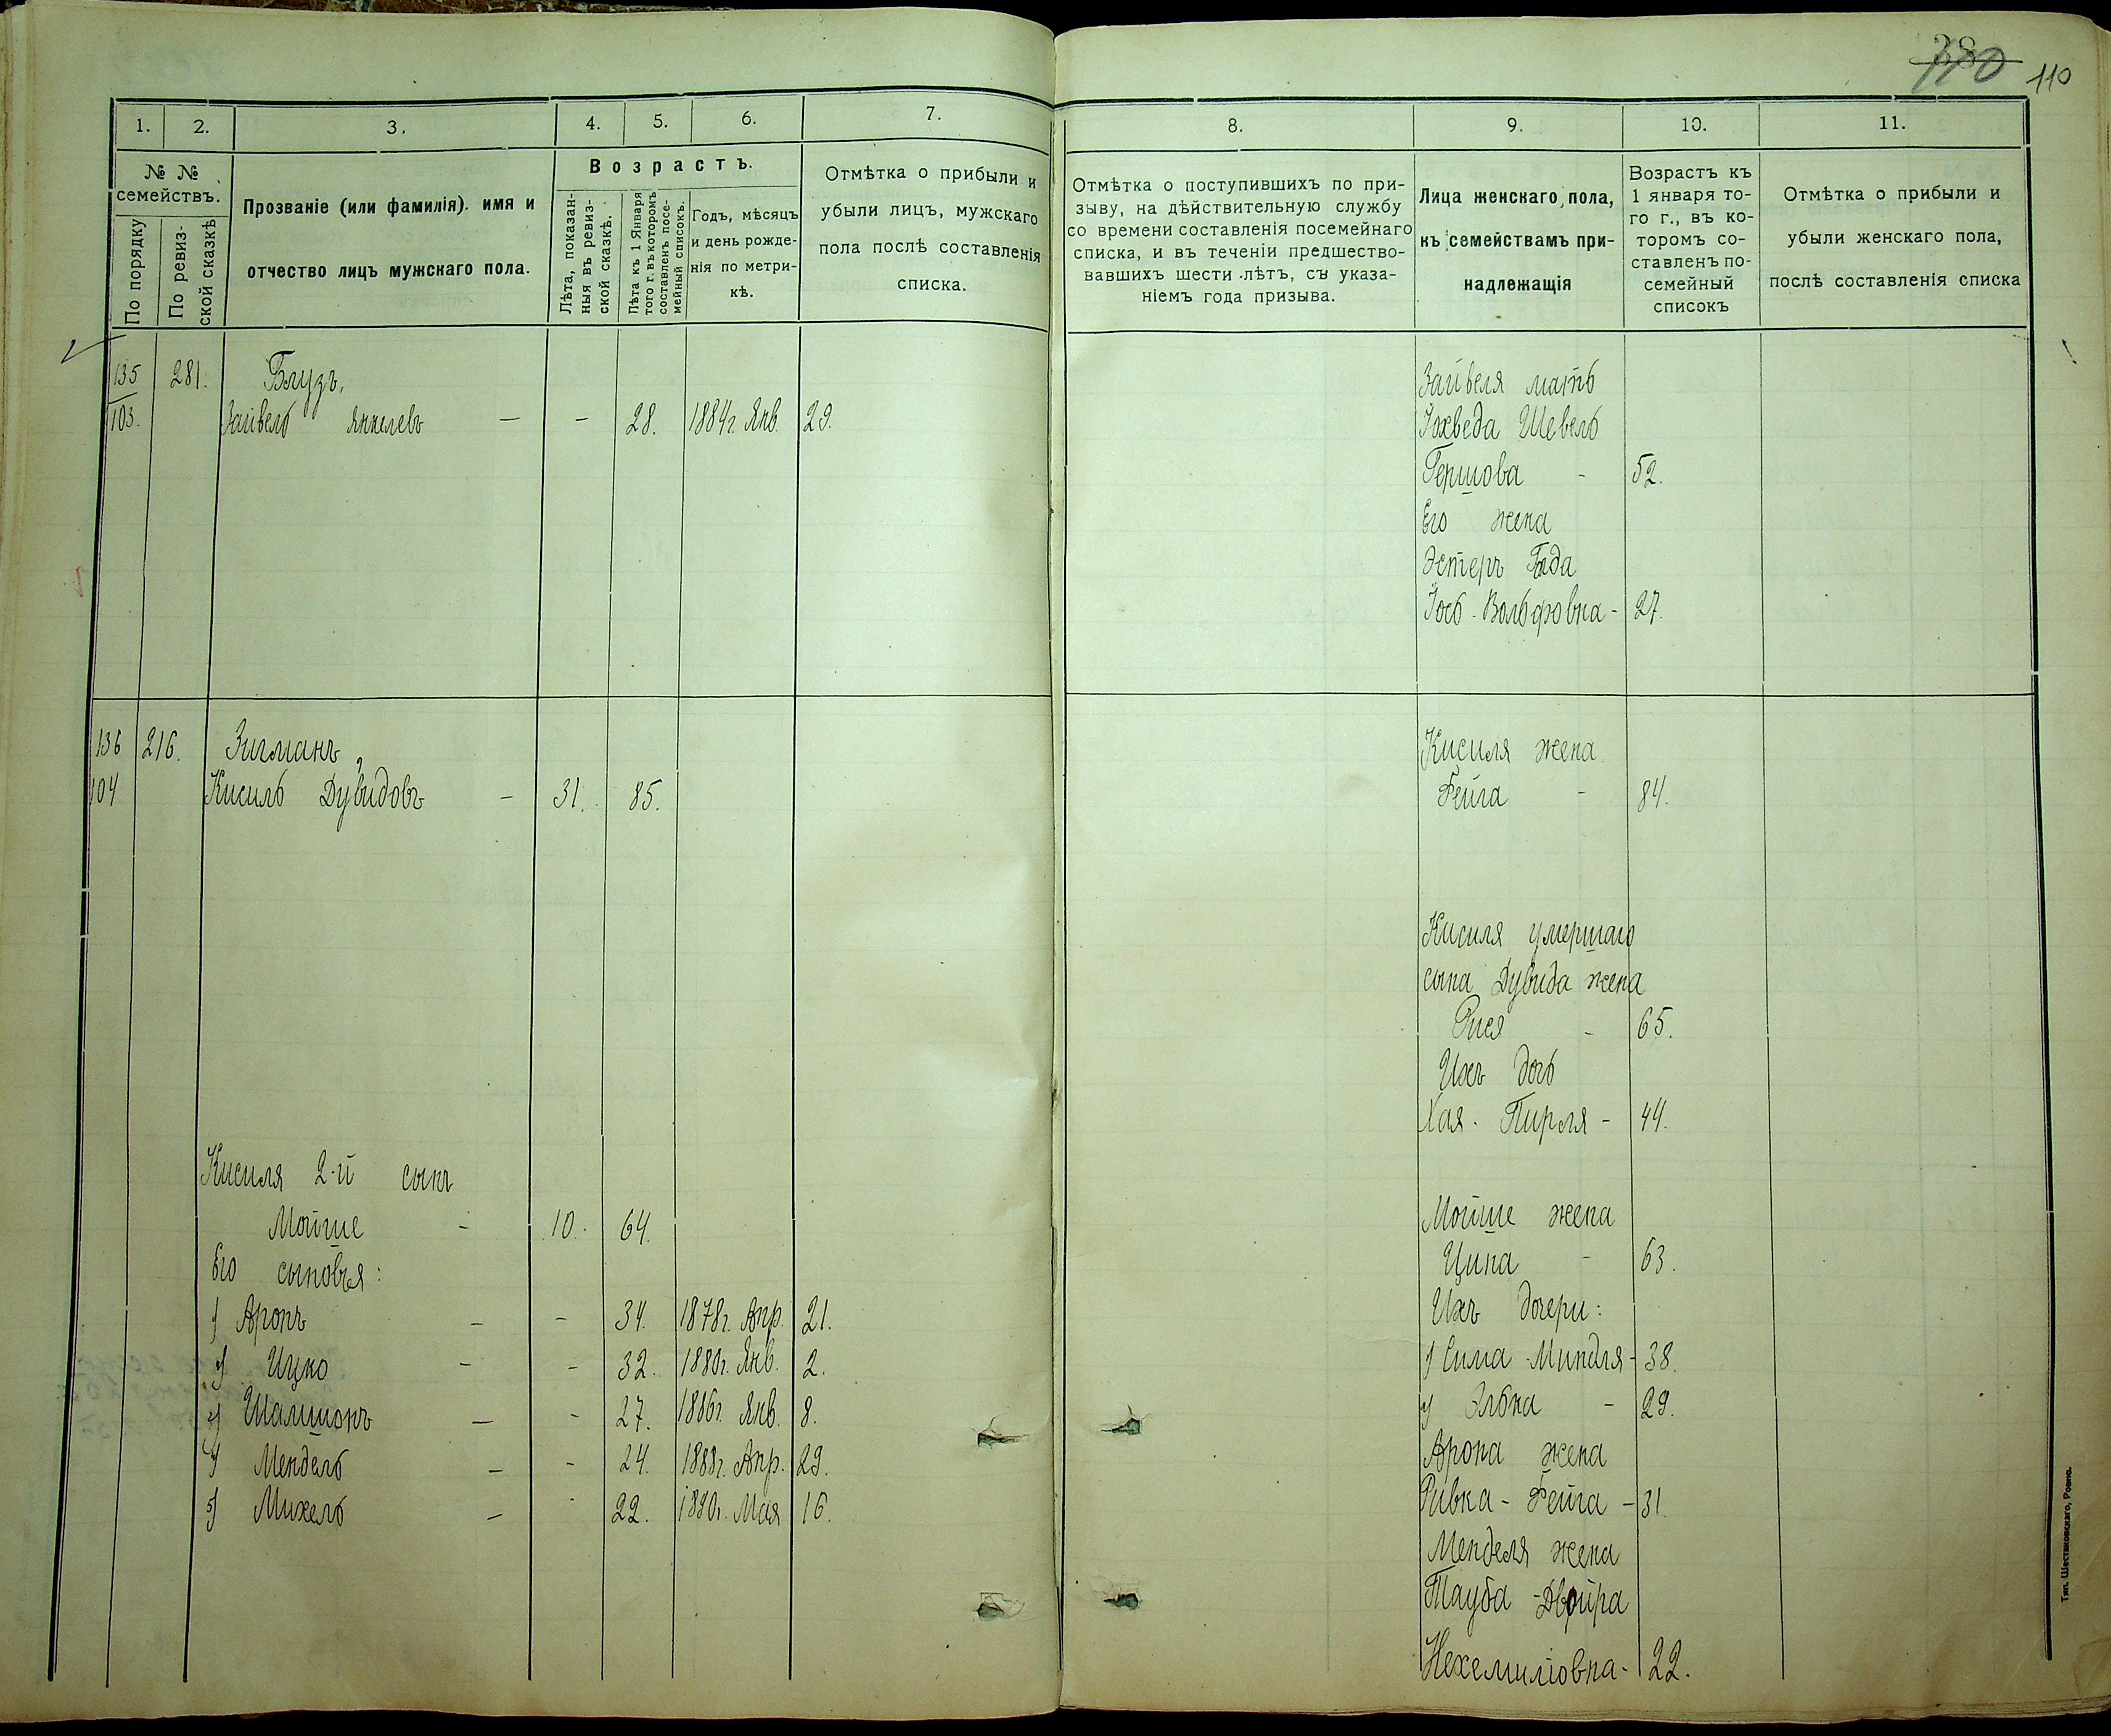 110
1. 2. 3. 4. 5. 6. 7.
№ № семействъ.
По порядку
По ревиз-
ской сказкѣ
Прозваніе (или фамилія). имя и
отчество лицъ мужскаго пола.
Возрастъ.
Лѣта, показан-
ныя въ ревиз-
ской сказкѣ.
Лѣта къ 1 Января
того г. въ которомъ
составленъ посе-
мейный списокъ.
Годъ, мѣсяцъ
и день рожде-
нія по метри-
кѣ.
Отмѣтка о прибыли и
убыли лицъ, мужскаго
пола послѣ составленія
списка.
135 281. Блузъ,
103. Зайвель Янкелевъ — - 28. 1884г. Янв. 29.
136 216. Зигманъ,
104 Кисиль Дувидовъ - 31. 85.
Кисиля 2-й сынъ
Мойше - 10. 64.
Его сыновья:
1) Аронъ - - 34. 1878г. Апр. 21.
2) Ицко - - 32. 1880г. Янв. 2.
3) Шамшонъ — - 27. 1886г. Янв. 8.
4) Мендель - - 24. 1888г. Апр. 29.
5) Михель - - 22. 1890г. Мая 16.
8. 9. 10. 11.
Отмѣтка о поступившихъ по при-
зыву, на дѣйствительную службу
со времени составленія посемейнаго
списка, и въ теченіи предшество-
вавшихъ шести лѣтъ, съ указа-
ніемъ года призыва.
Лица женскаго пола,
къ семействамъ при-
надлежащія
Возрастъ къ
1 января то-
го г., въ ко-
торомъ со-
ставленъ по-
семейный
списокъ
Отмѣтка о прибыли и
убыли женскаго пола,
послѣ составленія списка
Зайвеля мать
Іохведа Шевель
Гершова - 52.
Его жена
Эстеръ
Іось-Вольфовна - 27.
Кисиля жена
Фейга - 84.
Кисиля умершаго
сына Дувида жена
Рися - 65.
Ихъ дочь
Хая-Пирля - 44.
Мойше жена
Ципа - 63.
Ихъ дочери:
1) Сима-Миндля - 38.
2) Элька - 29.
Арона жена
Ривка-Фейга - 31.
Менделя жена
Тауба-Двойра
Нехеміовна - 22.
Тип. Шестаковскаго, Ровно.